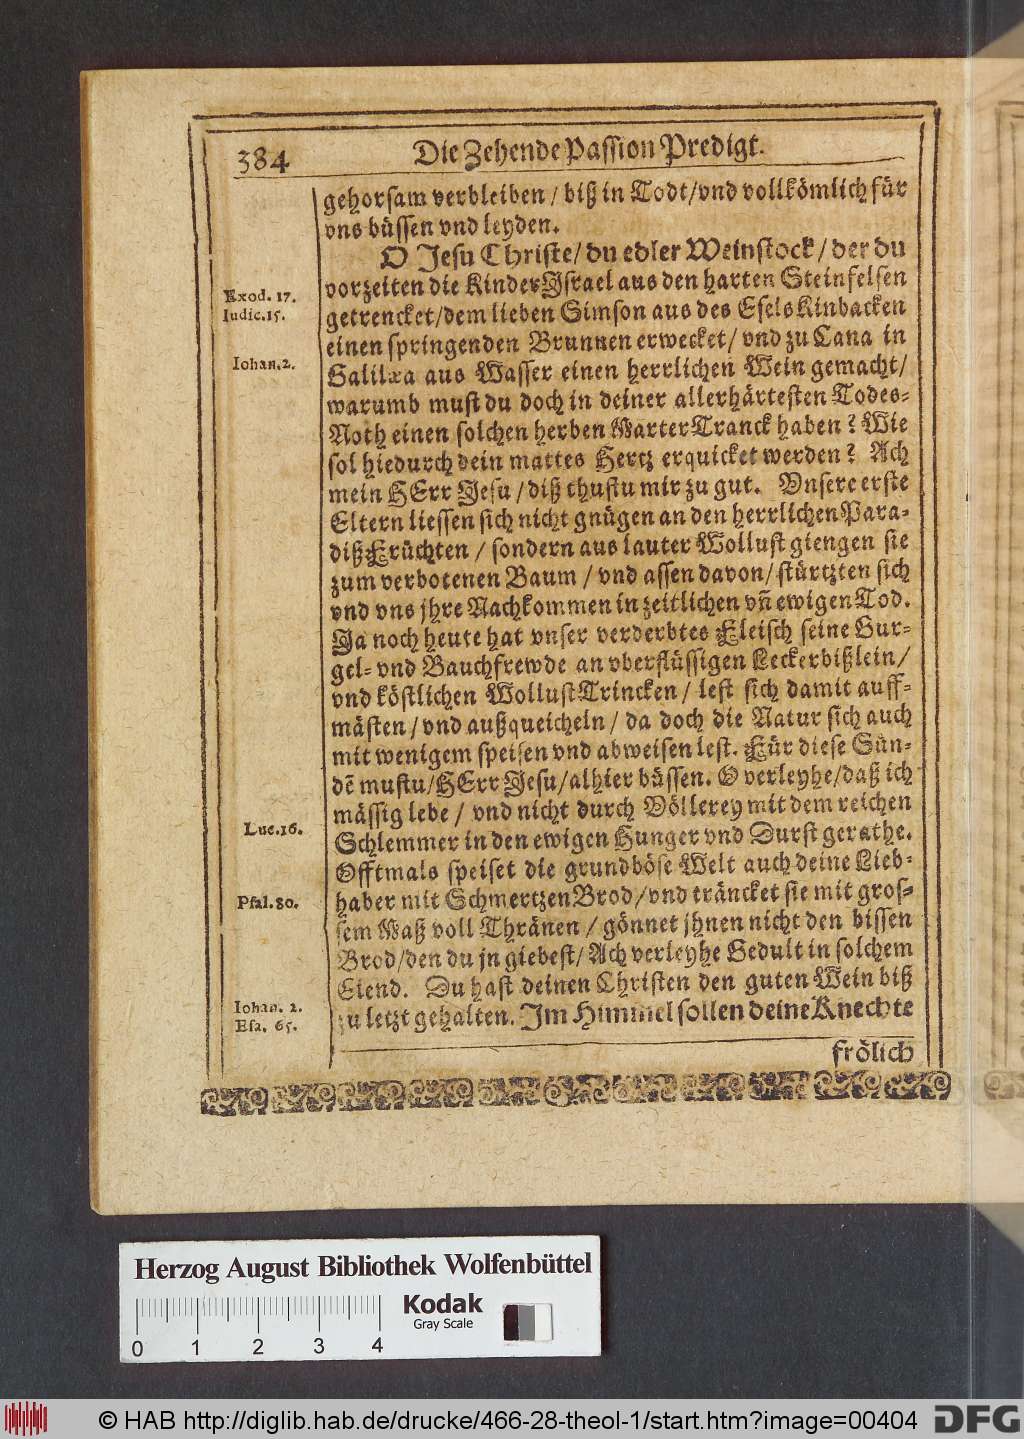 384
Die Zehende Passion Predigt.
gehorsam verbleiben / biß in Todt/vnd vollkömlich für
vns büssen vnd leyden.
O Jesu Christe/ du edler Weinstock/ der du
vorzeiten die Kinder Jsrael aus den harten Steinfelsen
Exod. 17.
getrencket/dem lieben Simson aus des Esels Kinbacken
Iudic.15.
einen springenden Brunnen erwecket/ vnd zu Cana in
Galilæa aus Wasser einen herrlichen Wein gemacht/
Iohan.2.
warumb mustu doch in deiner allerhärtesten Todes-
Noth einen solchen herben MarterTranck haben? Wie
sol hiedurch dein mattes Hertz erquicket werden? Ach
mein HErr Jesu / diß thustu mir zu gut. Vnsere erste
Eltern liessen sich nicht gnügen an den herrlichen Para-
dißFrüchten / sondern aus lauter Wollust giengen sie
zum verbotenen Baum / vnd assen davon/ stürtzten sich
vnd vns jhre Nachkommen in zeitlichen vñ ewigen Tod.
Ja noch heute hat vnser verderbtes Fleisch seine Gur-
gel- vnd Bauchfrewde an vberflüssigen Leckerbißlein/
vnd köstlichen WollustTrincken / lest sich damit auff-
mästen / vnd außqueicheln / da doch die Natur sich auch
mit wenigem speisen vnd abweisen lest. Für diese Sün-
dē mustu/HErr Jesu/alhier büssen. O verleyhe/daß ich
mässig lebe / vnd nicht durch Völlerey mit dem reichen
Luc.16.
Schlemmer in den ewigen Hunger vnd Durst gerathe.
Offtmals speiset die grundböse Welt auch deine Lieb-
haber mit SchmertzenBrod/vnd träncket sie mit gros-
Psal.80.
sem Maß voll Thränen / gönnet jhnen nicht den bissen
Brod/den du jn giebest/ Ach verleyhe Gedult in solchem
Elend. Du hast deinen Christen den guten Wein biß
Iohan. 2.
zu letzt gehalten. Jm Himmel sollen deine Knechte
Esa. 65.
frölich
Herzog August Bibliothek Wolfenbüttel
Kodak
Gray Scale
0 1 2 3 4
© HAB http://diglib.hab.de/drucke/466-28-theol-1/start.htm?image=00404
DFG